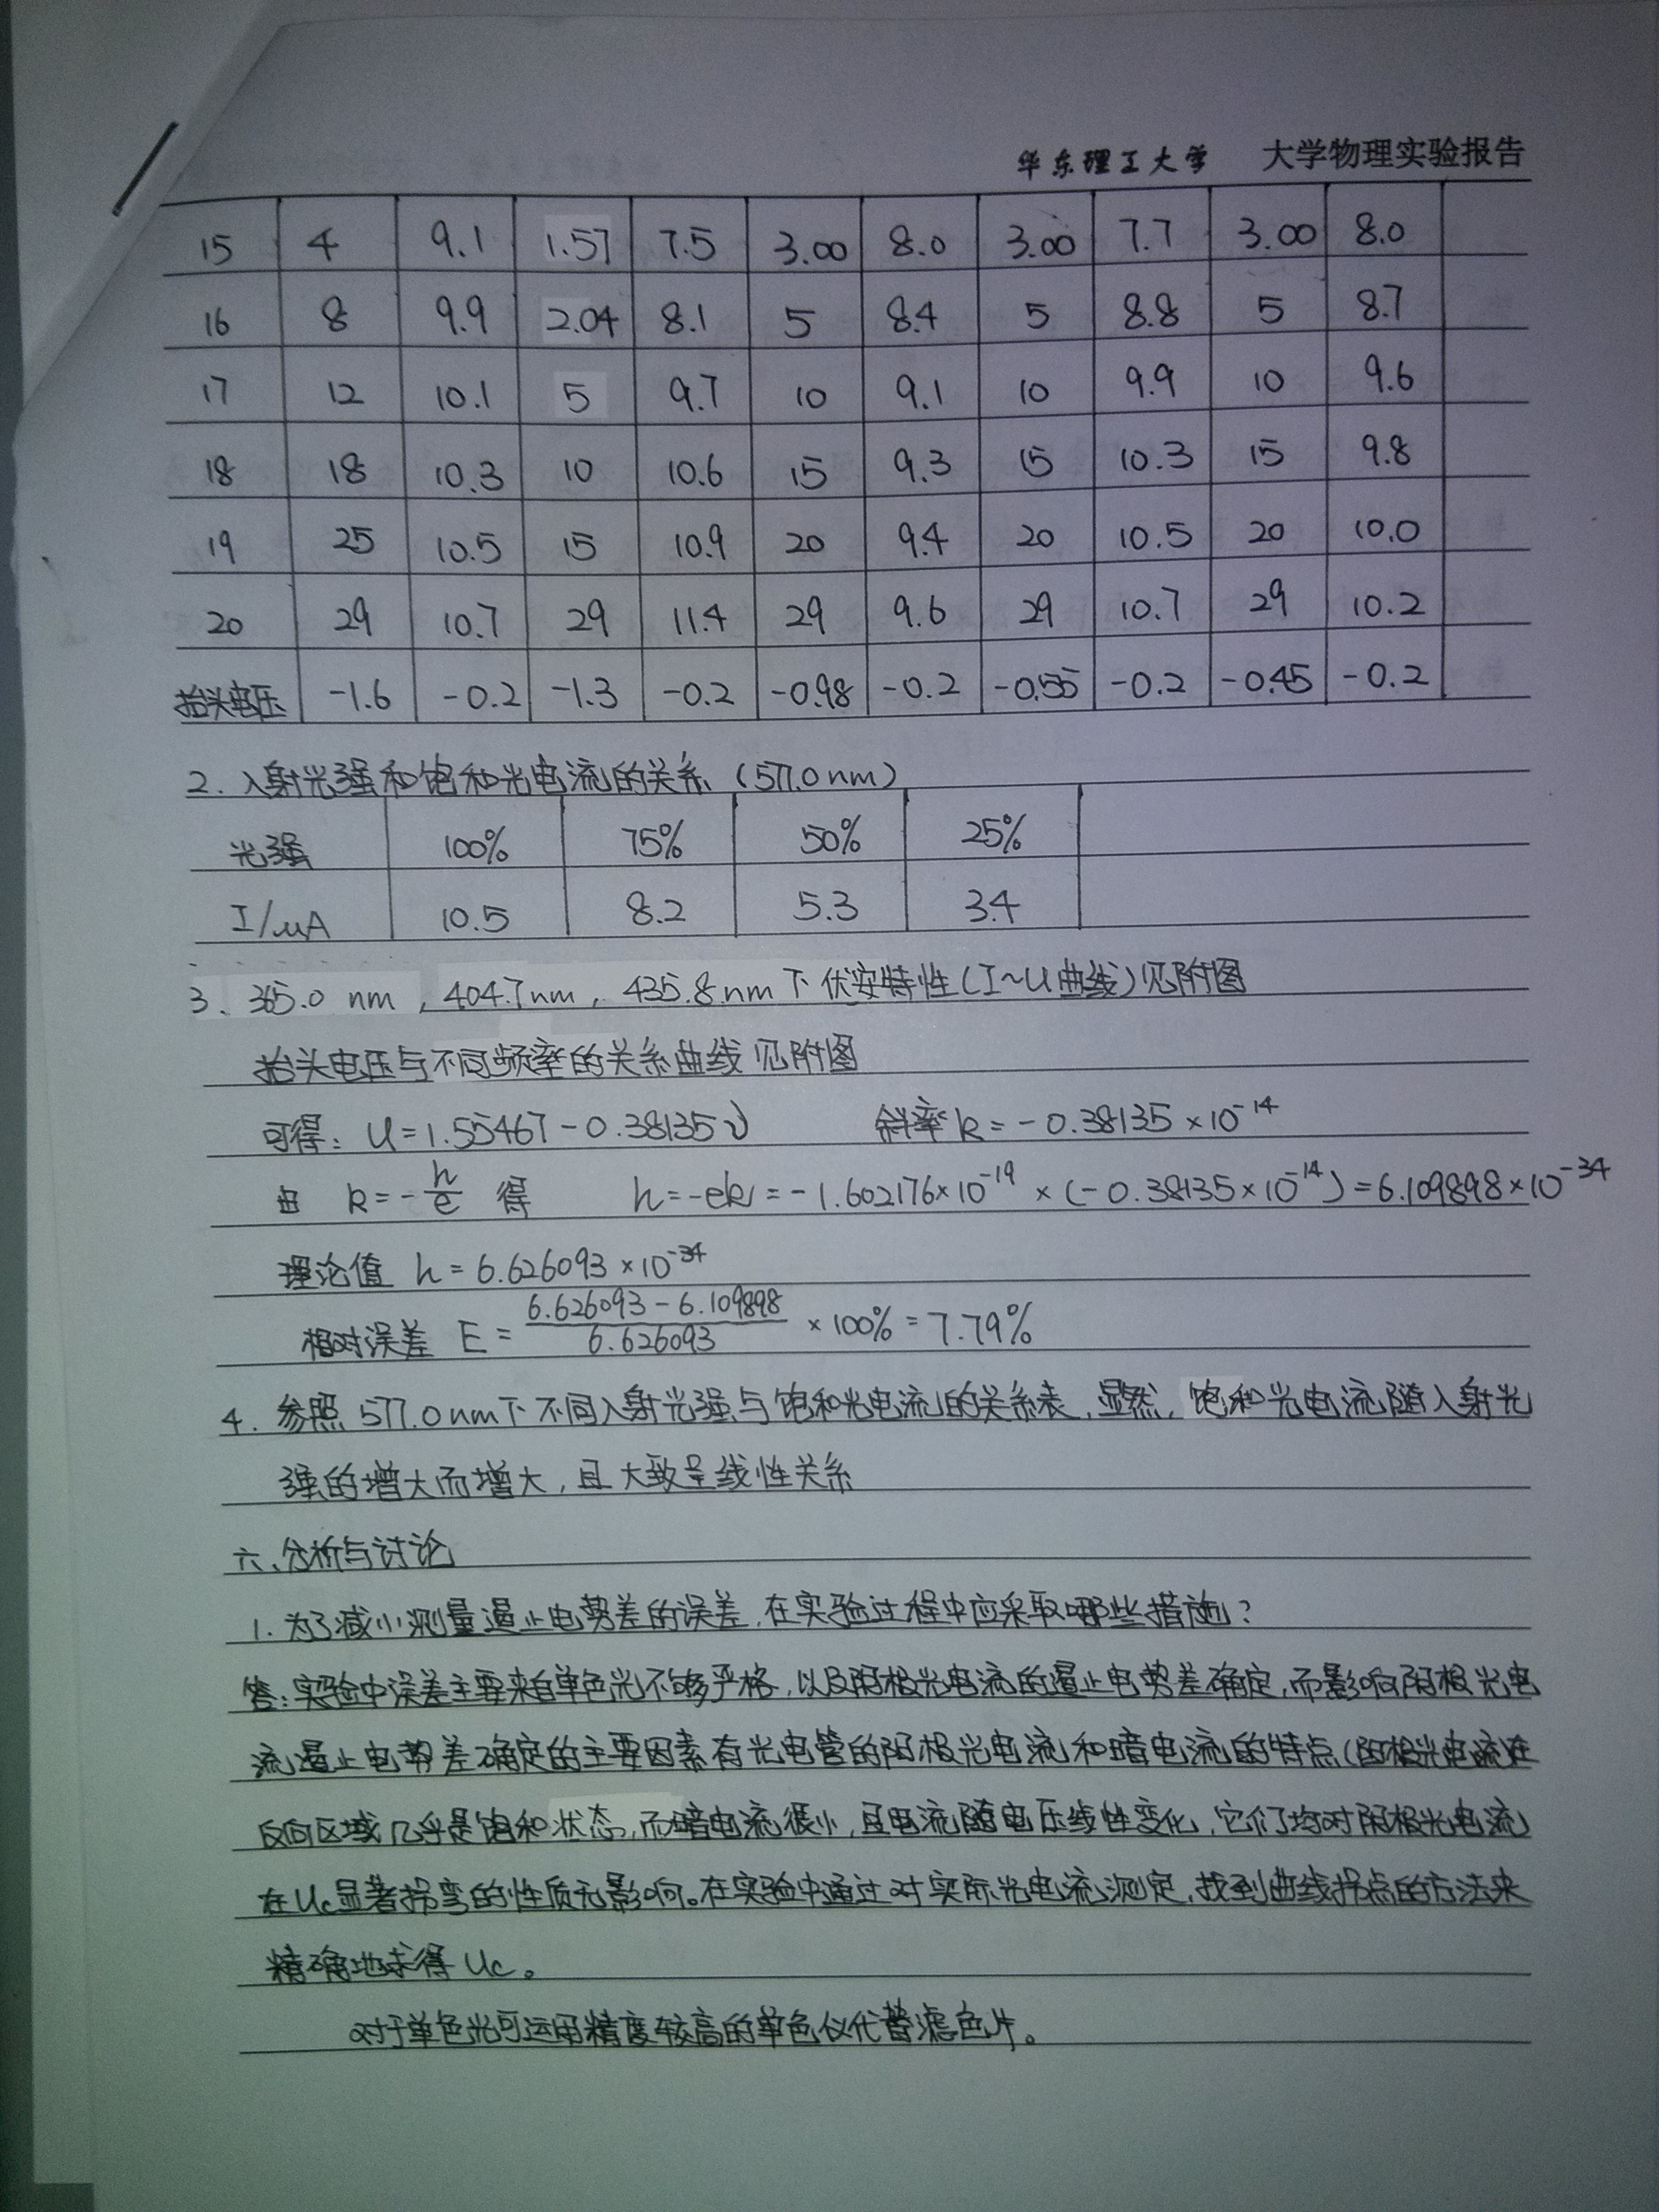 华东理工大学 大学物理实验报告
15 4 9.1 1.57 7.5 3.00 8.0 3.00 7.7 3.00 8.0
16 8 9.9 2.04 8.1 5 8.4 5 8.8 5 8.7
17 12 10.1 5 9.7 10 9.1 10 9.9 10 9.6
18 18 10.3 10 10.6 15 9.3 15 10.3 15 9.8
19 25 10.5 15 10.9 20 9.4 20 10.5 20 10.0
20 29 10.7 29 11.4 29 9.6 29 10.7 29 10.2
抬头电压 -1.6 -0.2 -1.3 -0.2 -0.98 -0.2 -0.55 -0.2 -0.45 -0.2
2. 入射光强和饱和光电流的关系 (577.0nm)
光强 100% 75% 50% 25%
I/μA 10.5 8.2 5.3 3.4
3、365.0 nm, 404.7nm, 435.8nm下伏安特性(I~U曲线)见附图
抬头电压与不同频率的关系曲线见附图
可得: U=1.55467-0.38135ν 斜率k=-0.38135×10⁻¹⁴
由 k=-h/e 得 h=-ek=-1.602176×10⁻¹⁹×(-0.38135×10⁻¹⁴)=6.109898×10⁻³⁴
理论值 h=6.626093×10⁻³⁴
相对误差 E=(6.626093-6.109898)/6.626093×100%=7.79%
4. 参照577.0nm下不同入射光强与饱和光电流的关系表,显然,饱和光电流随入射光
强的增大而增大,且大致呈线性关系
六、分析与讨论
1. 为了减小测量遏止电势差的误差,在实验过程中应采取哪些措施?
答:实验中误差主要来自单色光不够严格,以及阴极光电流的遏止电势差确定,而影响阴极光电
流遏止电势差确定的主要因素有光电管的阳极光电流和暗电流的特点(阳极光电流在
反向区域几乎是饱和状态,而暗电流很小,且电流随电压线性变化,它们均对阴极光电流
在Uc显著拐弯的性质无影响。在实验中通过对实际光电流测定,找到曲线拐点的方法来
精确地求得Uc。
对于单色光可运用精度较高的单色仪代替滤色片。